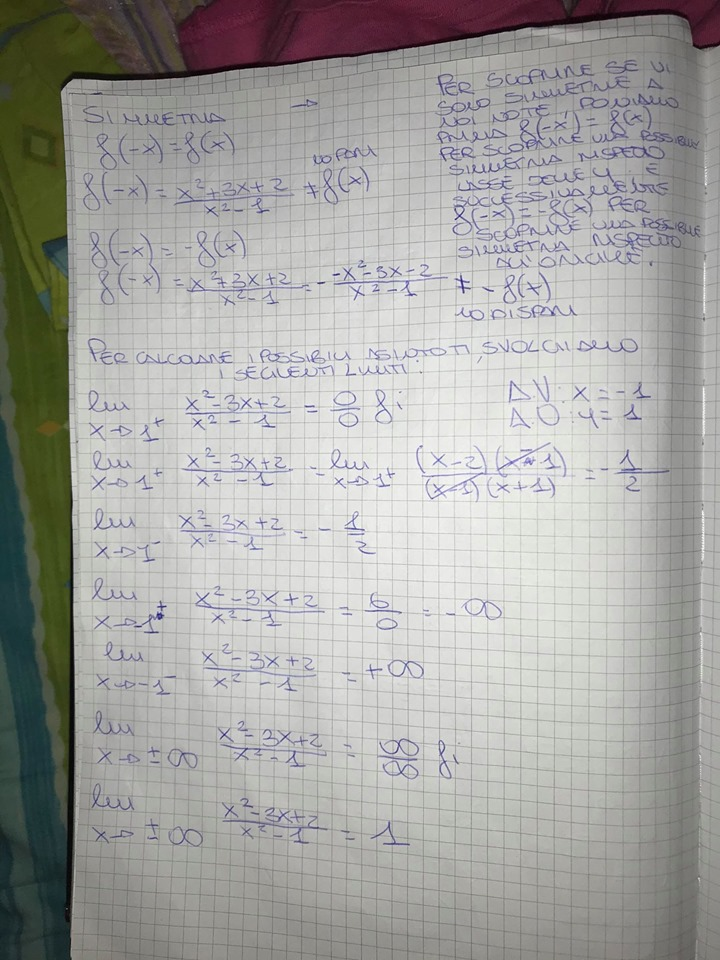 SIMMETRIA →
f(-x) = f(x)
f(-x) = x²+3x+2 / x²-1 ≠ f(x) NO PARI
f(-x) = -f(x)
f(-x) = x²+3x+2 / x²-1 = - -x²-3x-2 / x²-1 ≠ -f(x)
NO DISPARI
PER SCOPRIRE SE VI
SONO SIMMETRIE A
NOI NOTE, PONIAMO
PRIMA f(-x) = f(x)
PER SCOPRIRE UNA POSSIBILE
SIMMETRIA RISPETTO
L'ASSE DELLE Y E
SUCCESSIVAMENTE
f(-x) = -f(x) PER
SCOPRIRE UNA POSSIBILE
SIMMETRIA RISPETTO
ALL'ORIGINE.
PER CALCOLARE I POSSIBILI ASINTOTI, SVOLGIAMO
I SEGUENTI LIMITI:
lim x→1⁺ x²-3x+2 / x²-1 = 0/0 fi
A.V: x = -1
A.O: y = 1
lim x→1⁺ x²-3x+2 / x²-1 = lim x→1⁺ (x-2)(x-1) / (x-1)(x+1) = -1/2
lim x→1⁻ x²-3x+2 / x²-1 = -1/2
lim x→-1⁺ x²-3x+2 / x²-1 = 6/0 = -∞
lim x→-1⁻ x²-3x+2 / x²-1 = +∞
lim x→±∞ x²-3x+2 / x²-1 = ∞/∞ fi
lim x→±∞ x²-3x+2 / x²-1 = 1